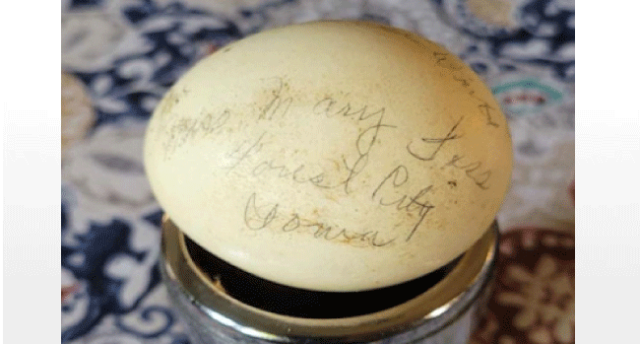 Miss Mary Foss
Forest City
Iowa